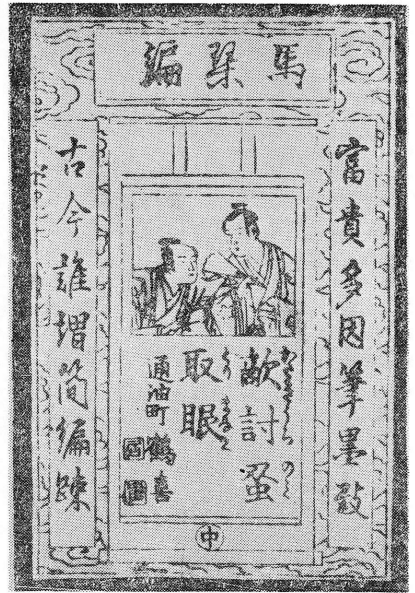 馬琴編
富貴多因筆墨致
敵討蚤
取眼
通油町
鶴喜
中
古今誰謂簡編疎